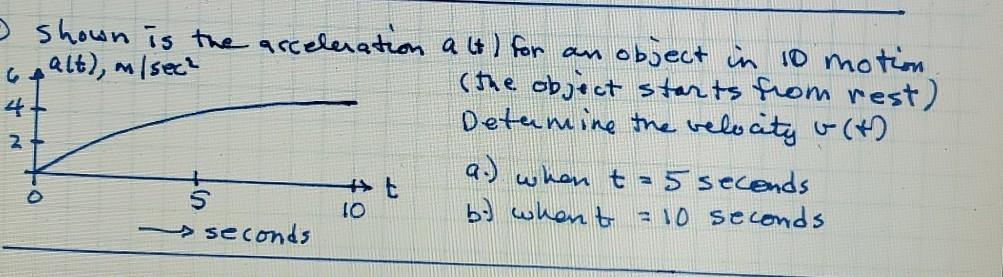 Shown is the acceleration a(t) for an object in 1D motion
(the object starts from rest)
Determine the velocity v(t)
a.) when t = 5 seconds
b.) when t = 10 seconds
a(t), m/sec²
6
4
2
0
5
10
t
→ seconds